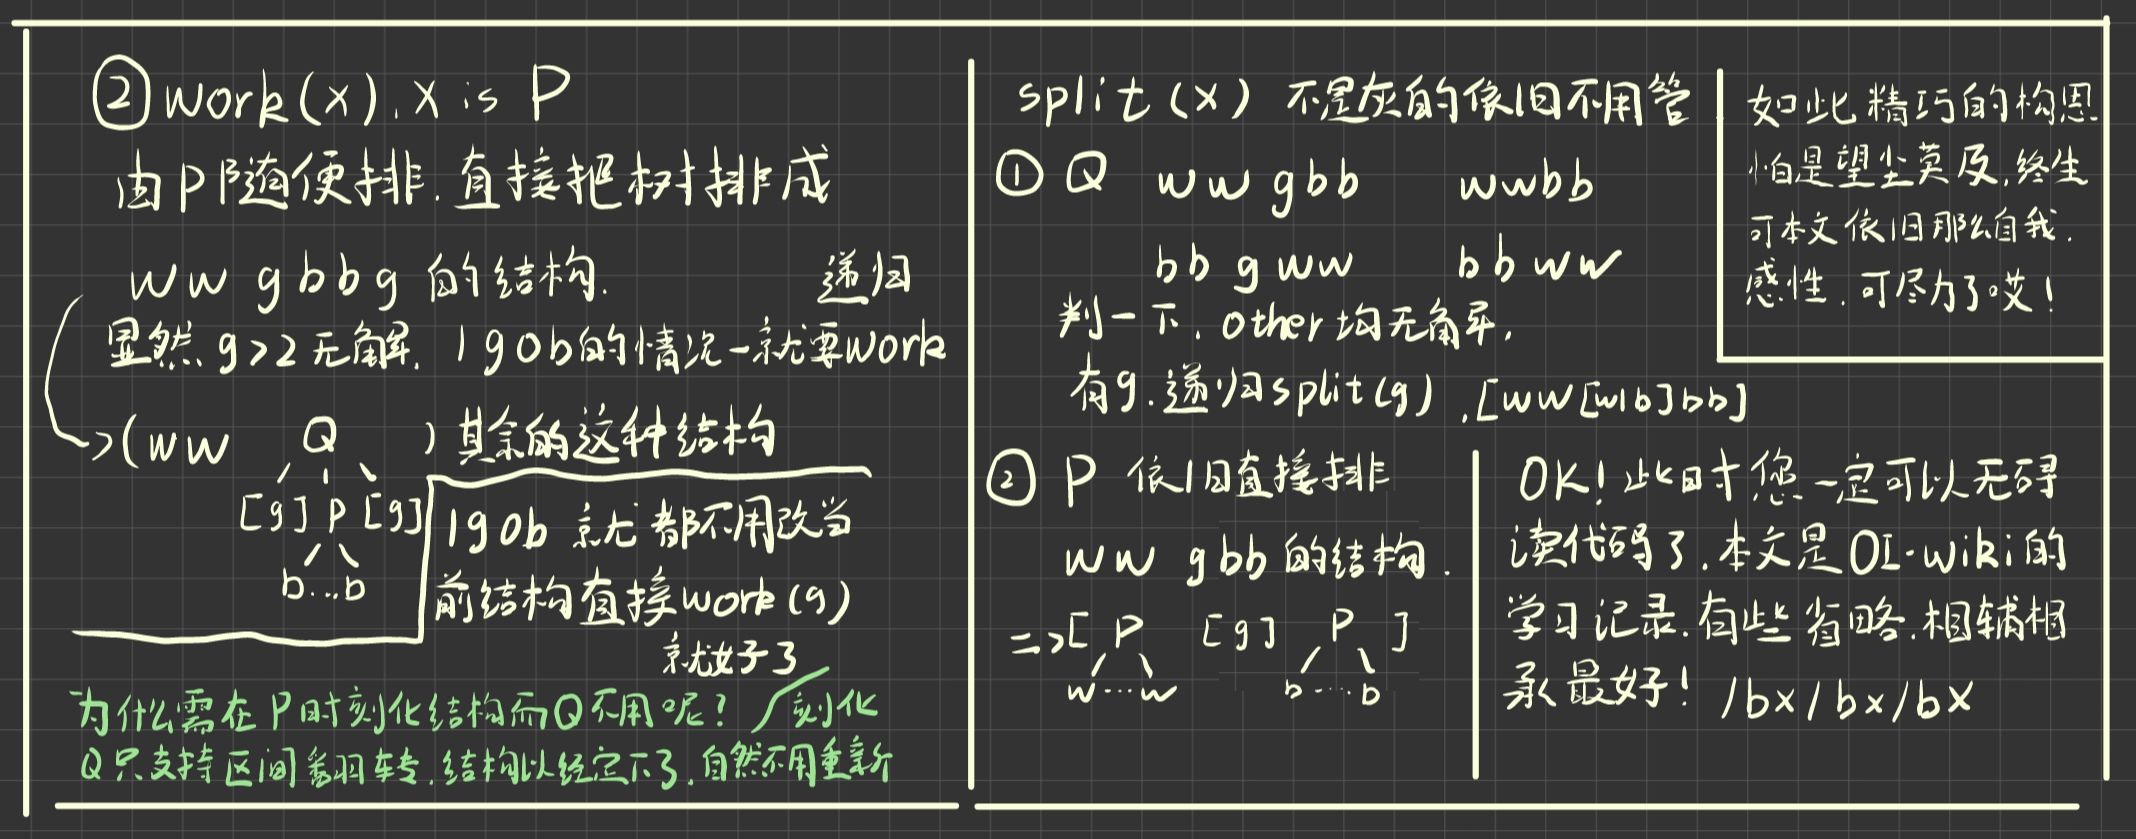 ② work(x). x is P
由P随便排. 直接把树排成
ww gbbg 的结构. 递归
显然. g>2无解. 1g0b的情况一就要work
>(ww Q ) 其余的这种结构
[g] P [g]
b...b
1g0b 就都不用改当
前结构直接work(g)
就好了
为什么需在P时刻化结构而Q不用呢?
Q只支持区间翻转. 结构以经定下了. 自然不用重新
刻化
split(x) 不是灰的依旧不用管
① Q ww gbb wwbb
bb g ww bb ww
判一下. other均无解.
有g. 递归split(g) .[ww[w|b]bb]
② P 依旧直接排
ww gbb 的结构.
=>[ P [g] P ]
w...w b...b
如此精巧的构思
怕是望尘莫及, 终生
可本文依旧那么自我.
感性. 可尽力了哎!
OK! 此时您一定可以无碍
读代码了. 本文是OI-wiki的
学习记录. 有些省略. 相辅相
承最好! /bx/bx/bx